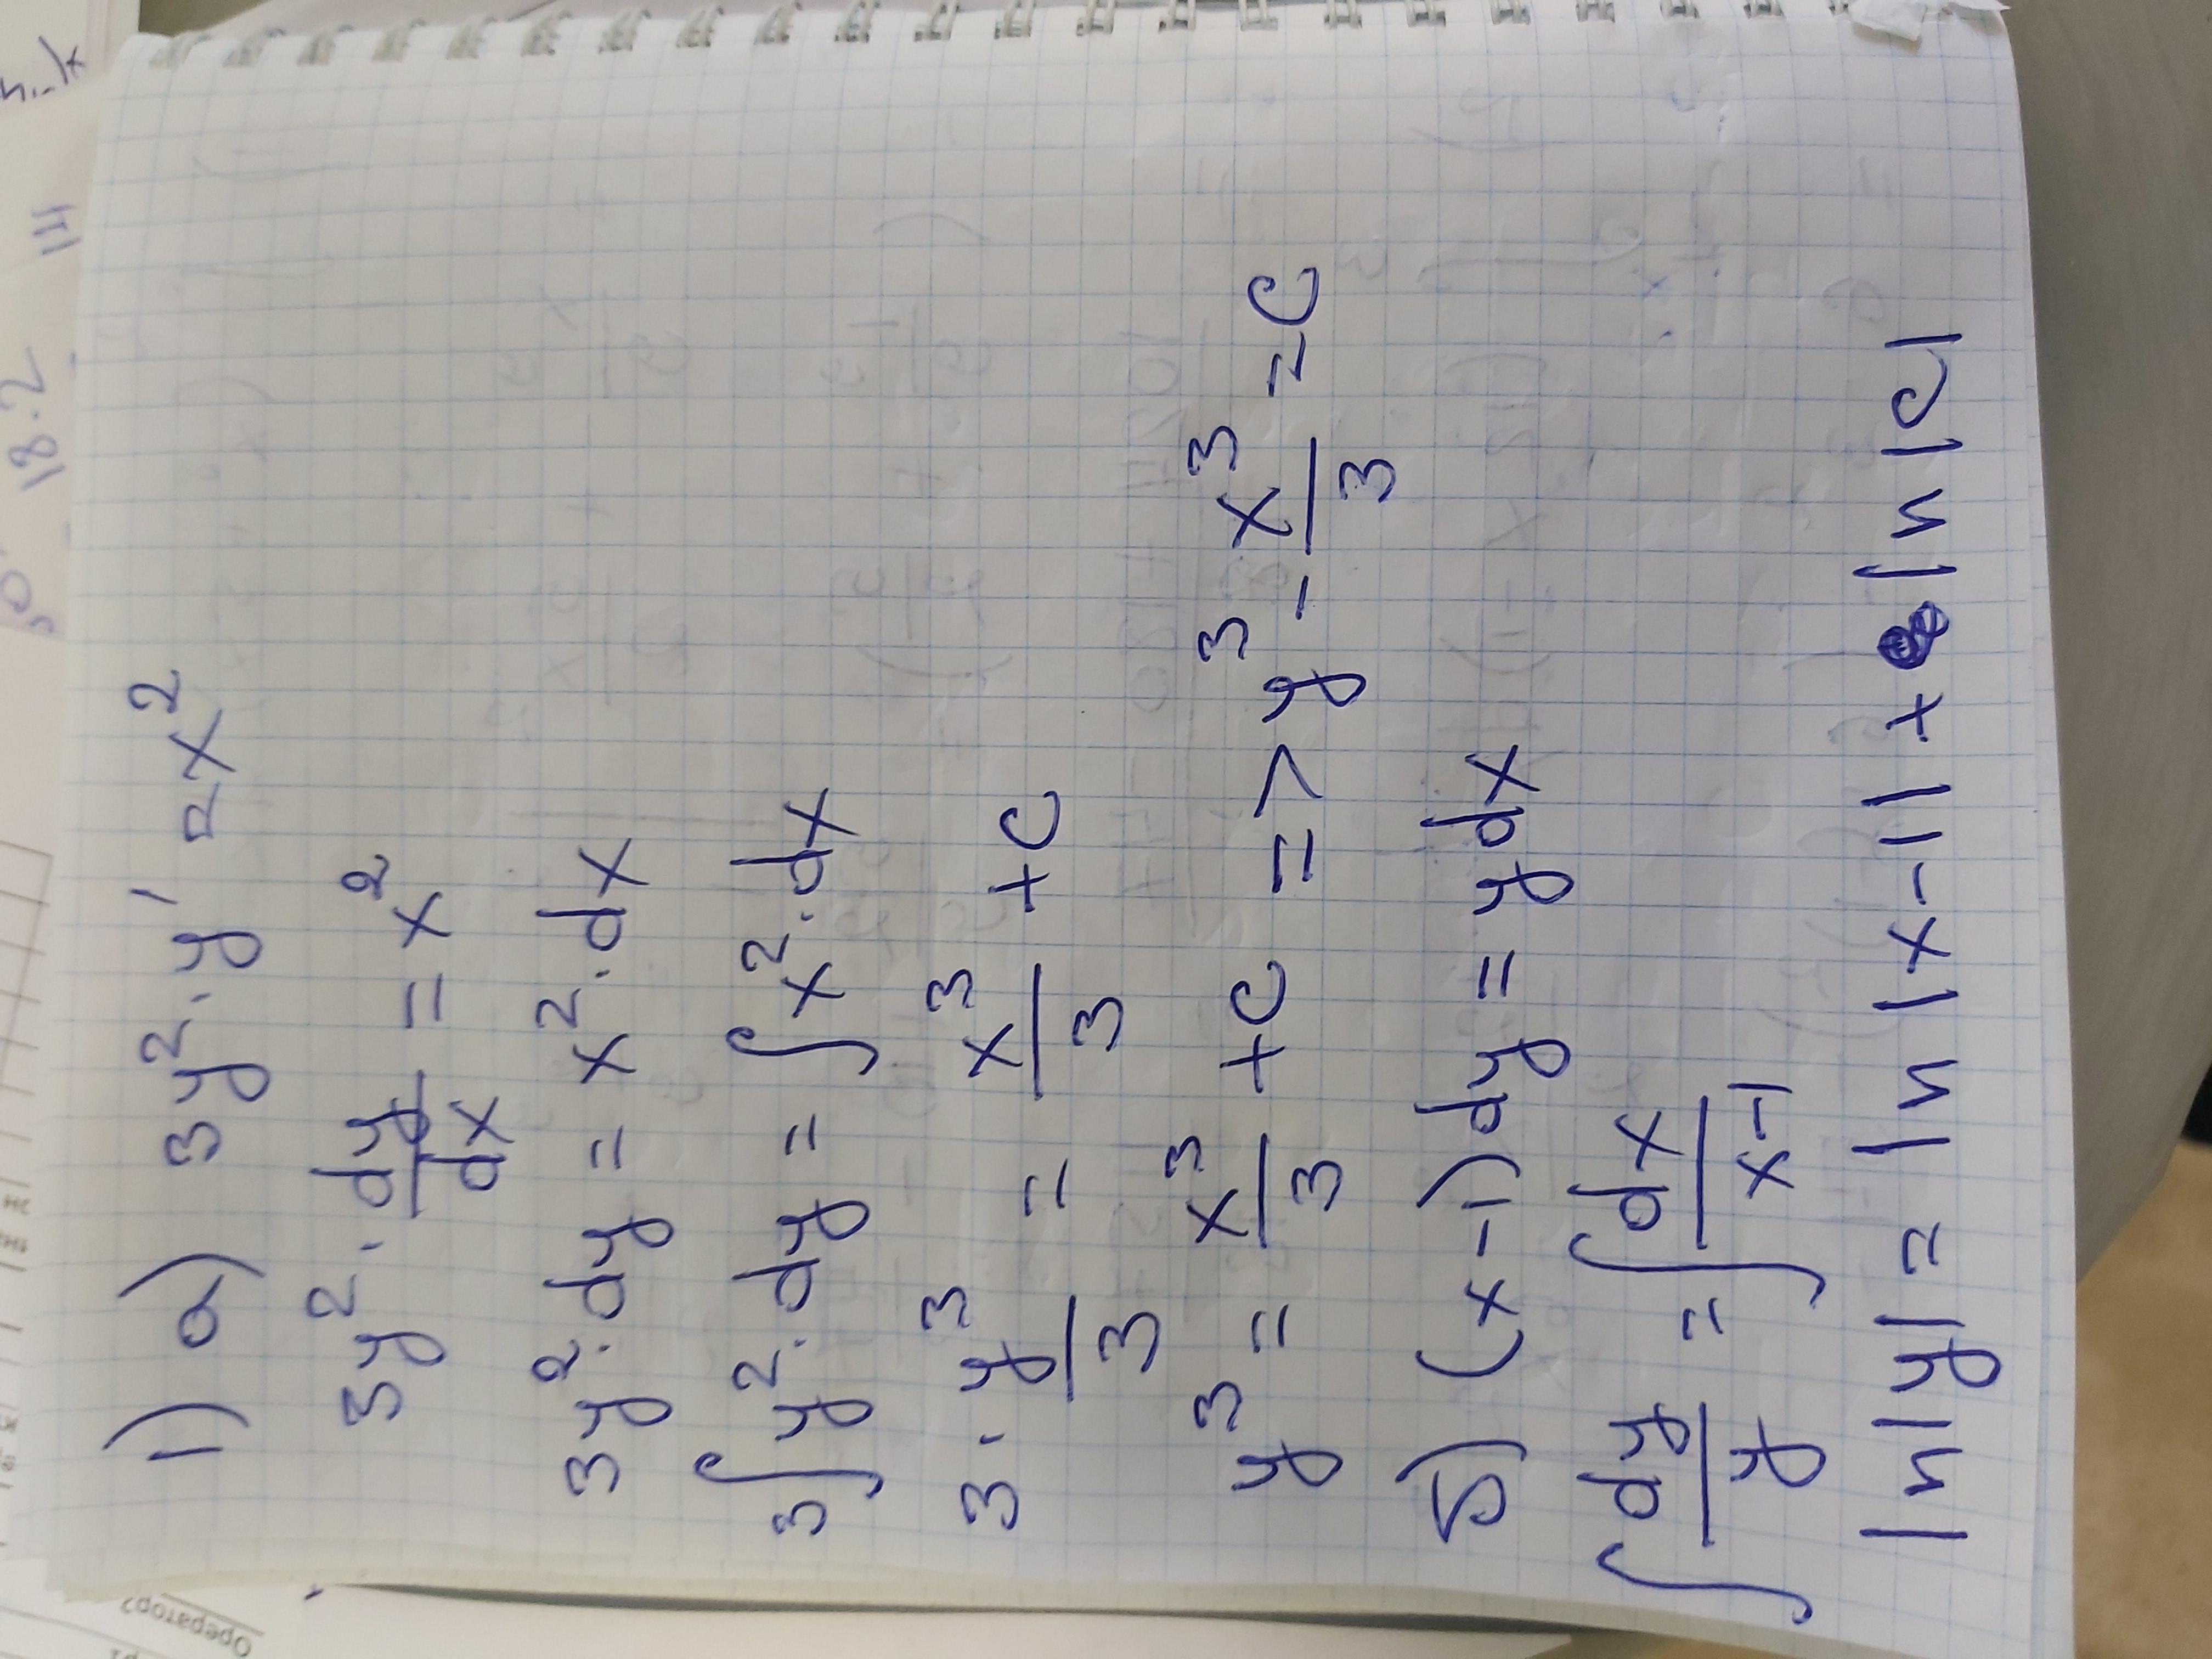 1) a) 3y²·y' = x²
3y²·dy/dx = x²
3y²·dy = x²·dx
3∫y²·dy = ∫x²·dx
3·y³/3 = x³/3 + C
y³ = x³/3 + C => y³ - x³/3 = C
б) (x-1)dy = ydx
∫dy/y = ∫dx/x-1
ln|y| = ln|x-1| + ln|C|
18.2
Оператор?